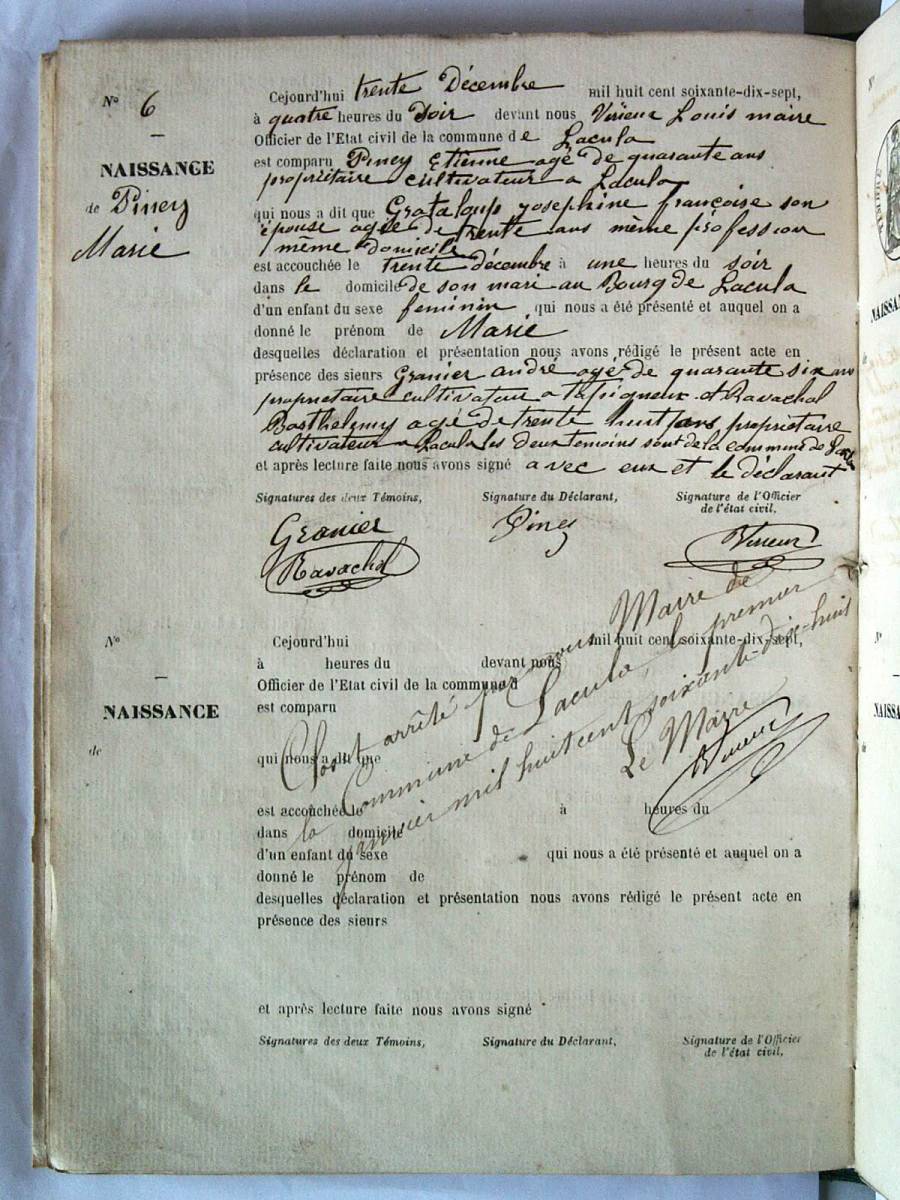 N° 6
NAISSANCE
de Piney
Marie
Cejourd'hui trente Décembre mil huit cent soixante-dix-sept,
à quatre heures du Soir devant nous Virieux Louis maire
Officier de l'Etat civil de la commune de Lacula
est comparu Piney Etienne agé de quarante ans
propriétaire cultivateur a Lacula
qui nous a dit que Grataloup Josephine françoise son
épouse agée de trente ans même profession
même domicile
est accouchée le trente décembre à une heures du soir
dans le domicile de son mari au Bourg de Lacula
d'un enfant du sexe feminin qui nous a été présenté et auquel on a
donné le prénom de Marie
desquelles déclaration et présentation nous avons rédigé le présent acte en
présence des sieurs Granier andré agé de quarante six ans
propriétaire cultivateur a et Ravachol
Barthelemy agé de trente huit ans propriétaire
cultivateur a Lacula les deux temoins sont de la commune de
et après lecture faite nous avons signé avec eux et le déclarant
Signatures des deux Témoins, Signature du Déclarant, Signature de l'Officier
de l'état civil.
Granier Piney Virieux
Ravachol
N°
NAISSANCE
de
Cejourd'hui mil huit cent soixante-dix-sept,
à heures du devant nous
Officier de l'Etat civil de la commune d
est comparu
qui nous a dit que
est accouchée le à heures du
dans domicile
d'un enfant du sexe qui nous a été présenté et auquel on a
donné le prénom de
desquelles déclaration et présentation nous avons rédigé le présent acte en
présence des sieurs
et après lecture faite nous avons signé
Signatures des deux Témoins, Signature du Déclarant, Signature de l'Officier
de l'état civil.
Clos et arrêté par nous Maire de
la Commune de Lacula, le premier
janvier mil huit cent soixante-dix-huit
Le Maire
Virieux